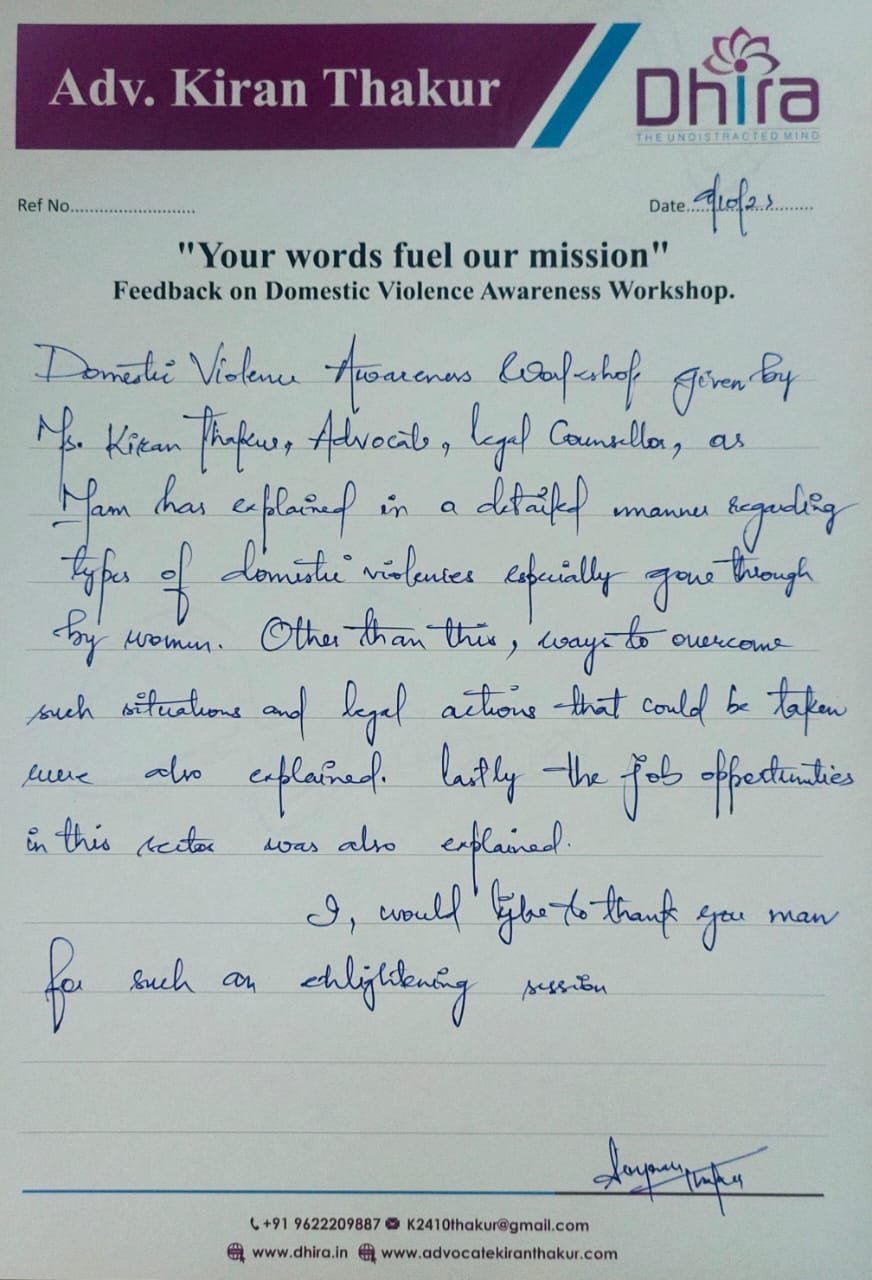 Adv. Kiran Thakur
Dhira
THE UNDISTRACTED MIND
Ref No..........................
Date....9/10/23..........
"Your words fuel our mission"
Feedback on Domestic Violence Awareness Workshop.
Domestic Violence Awareness Workshop given by
Ms. Kiran Thakur, Advocate, legal Counsellor, as
Mam has explained in a detailed manner regarding
types of domestic violences especially gone through
by women. Other than this, ways to overcome
such situations and legal actions that could be taken
were also explained. lastly the job opportunities
in this sector was also explained.
I, would like to thank you mam
for such an enlightening session
+91 9622209887 K2410thakur@gmail.com
www.dhira.in www.advocatekiranthakur.com